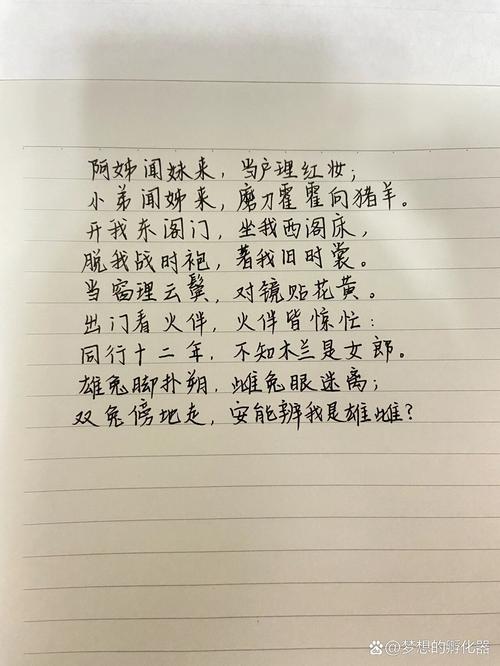 阿姊闻妹来，当户理红妆；
小弟闻姊来，磨刀霍霍向猪羊。
开我东阁门，坐我西阁床，
脱我战时袍，著我旧时裳。
当窗理云鬓，对镜贴花黄。
出门看火伴，火伴皆惊忙：
同行十二年，不知木兰是女郎。
雄兔脚扑朔，雌兔眼迷离；
双兔傍地走，安能辨我是雄雌？
@梦想的孵化器